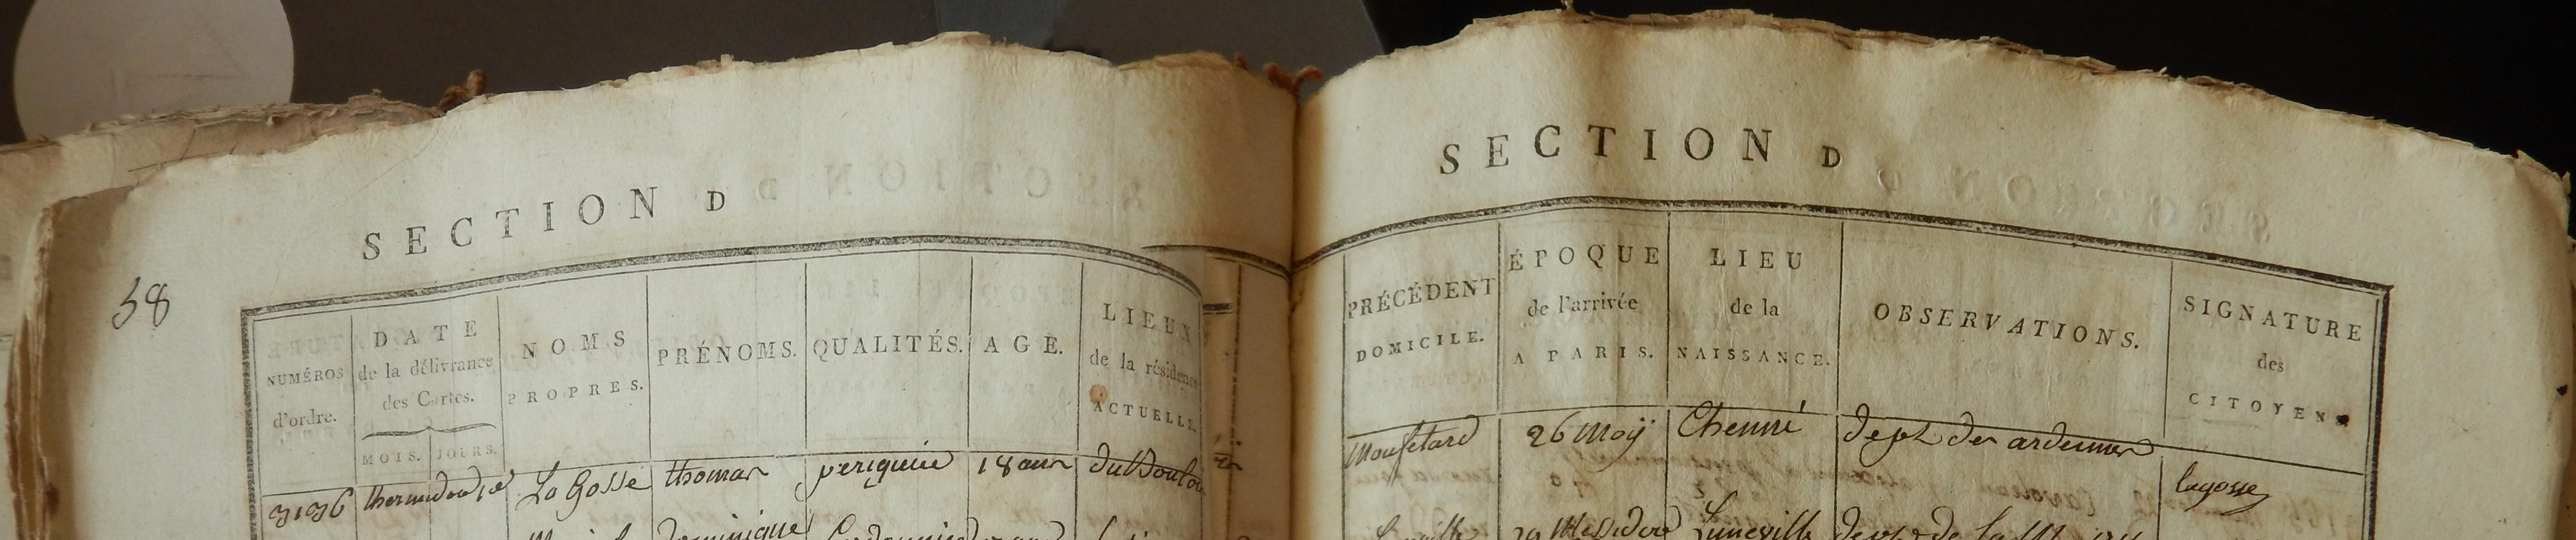 SECTION D
58
NUMÉROS
d'ordre.
DATE
de la délivrance
des Cartes.
MOIS. JOURS.
NOMS
PROPRES.
PRÉNOMS.
QUALITÉS.
AGE.
LIEUX
de la résidence
ACTUELLE.
3136 thermidor 1er La Gosse thomas 18 ans
Dominique
SECTION D
PRÉCÉDENT
DOMICILE.
ÉPOQUE
de l'arrivée
A PARIS.
LIEU
de la
NAISSANCE.
OBSERVATIONS.
SIGNATURE
des
CITOYENS
Moufetard 26 May dept des ardennes lagosse
29 Messidor Luneville dept de la